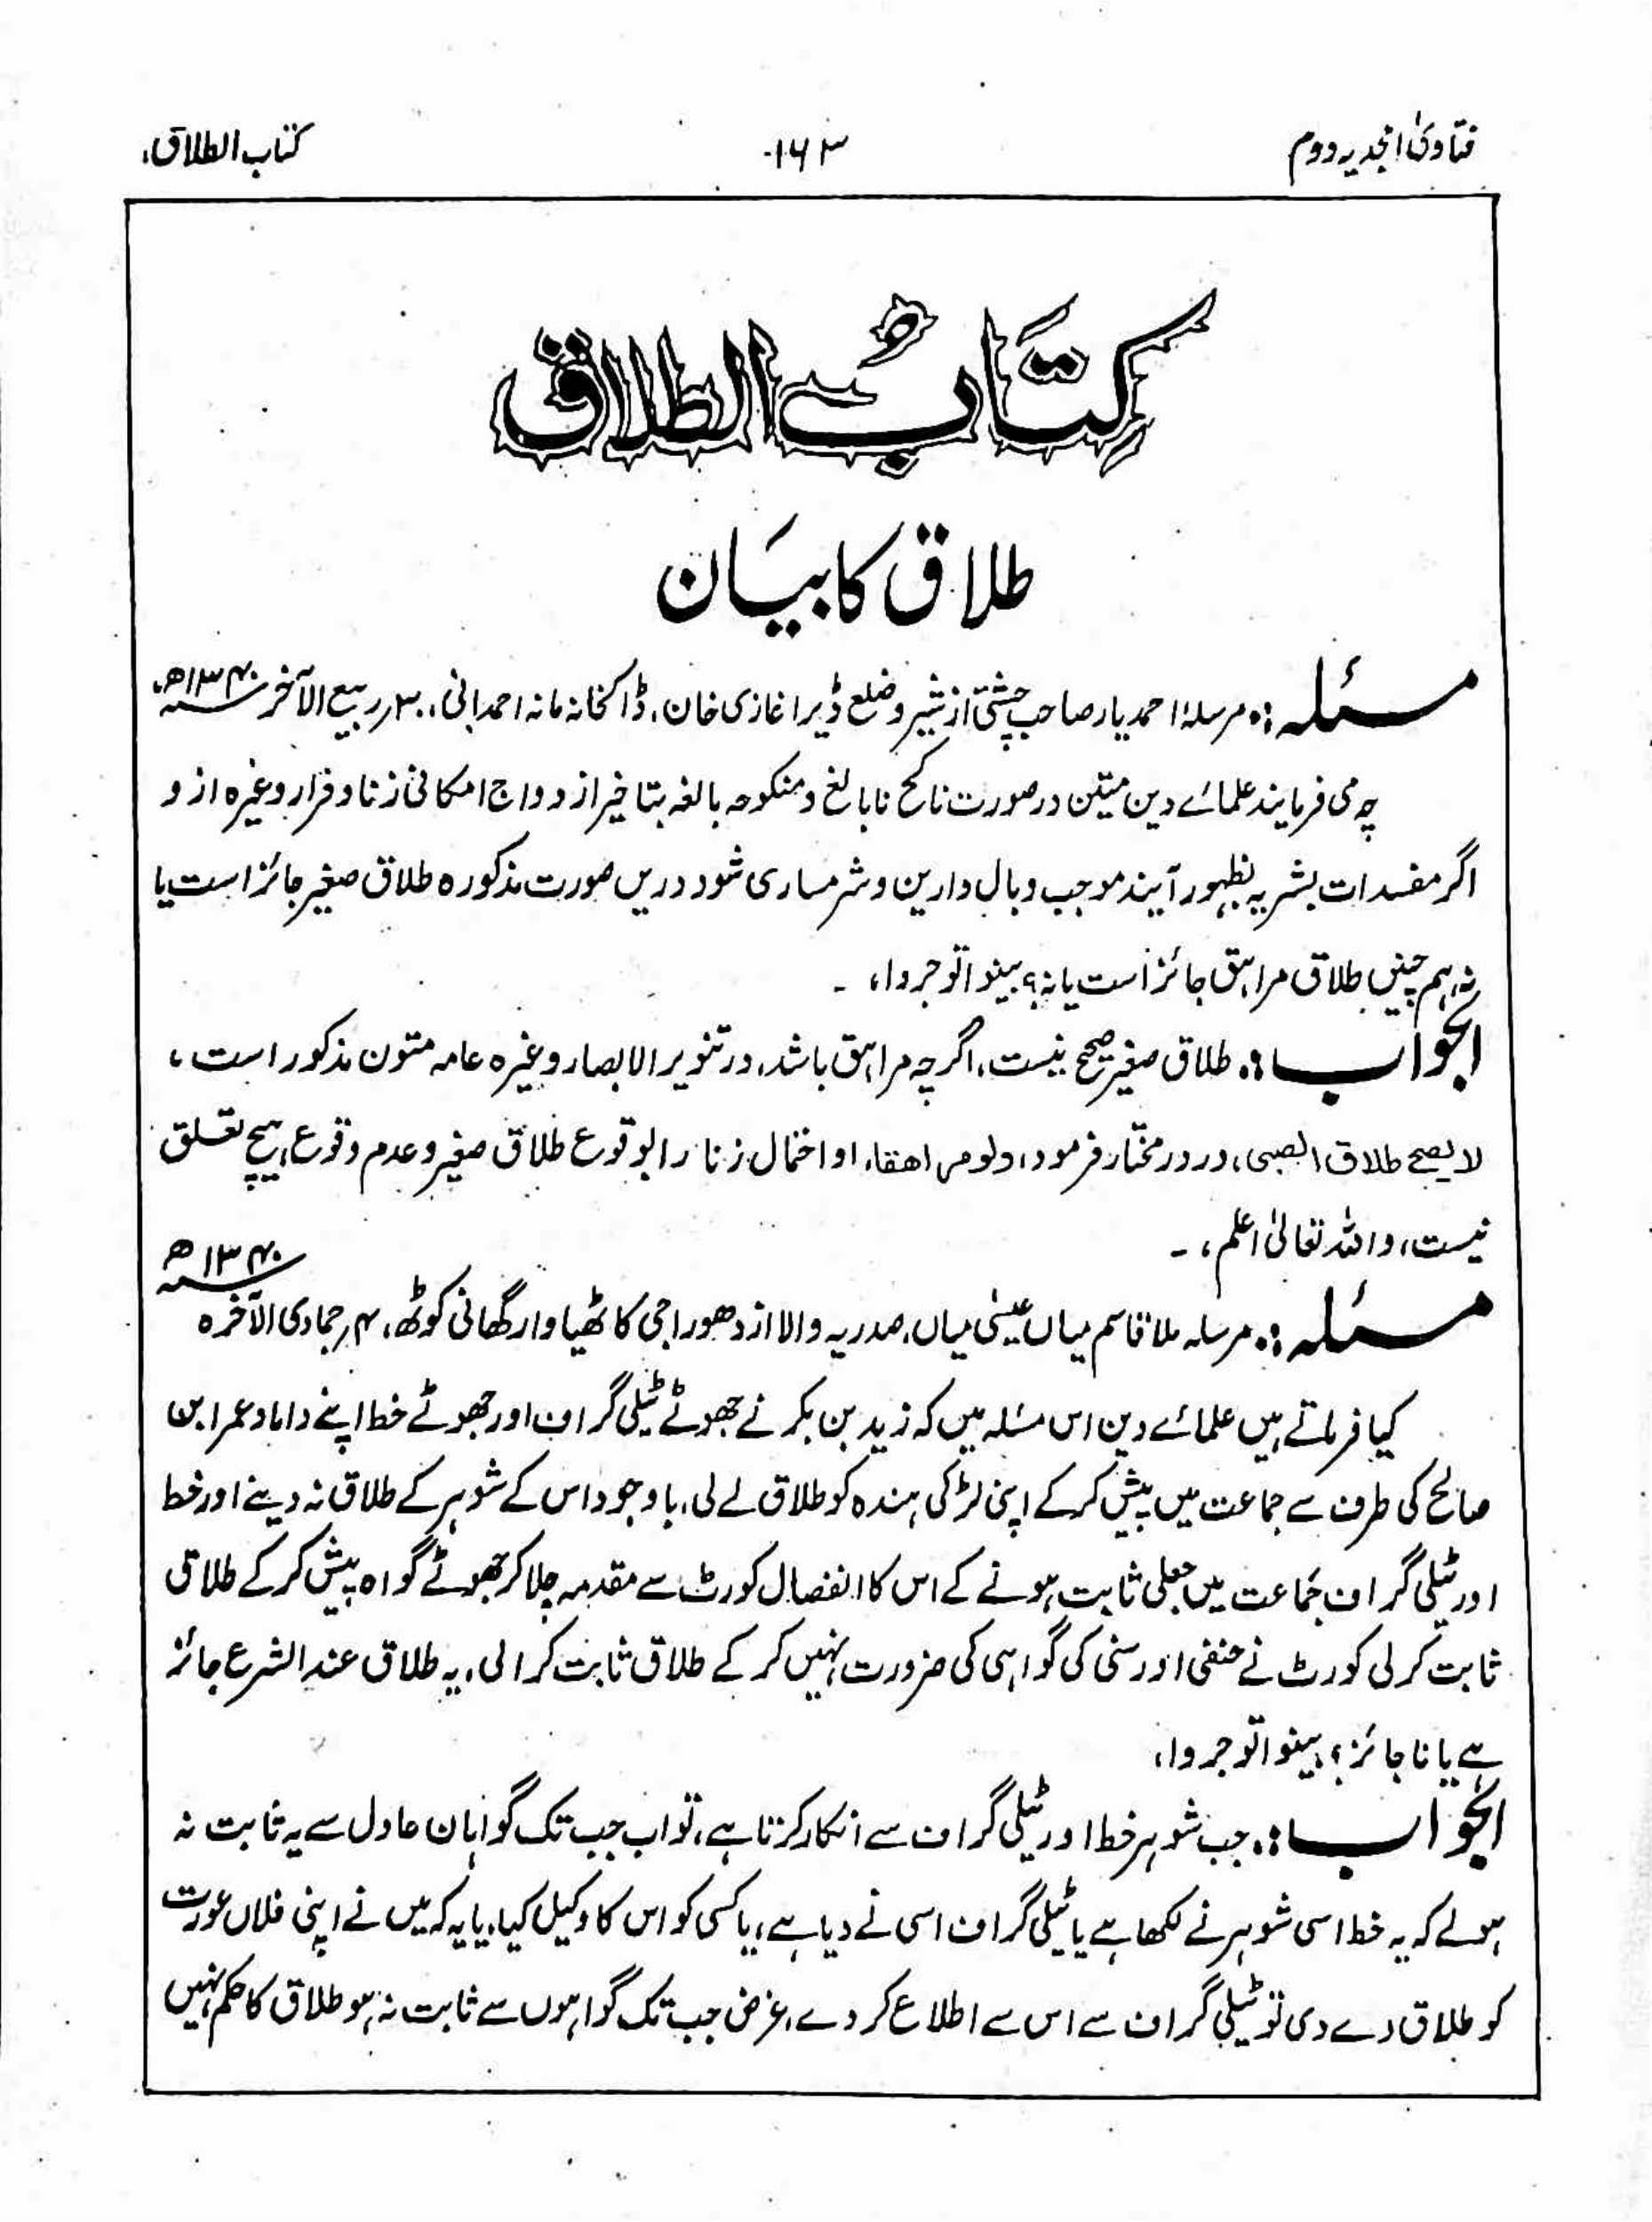 فتاویٰ امجدیہ دوم
۱۶۳
کتاب الطلاق،
کِتَابُ الطلاق
طلاق کا بیَان
مسئلہ :۔ مرسلہ احمد یار صاحب چشتی از شیرو ضلع ڈیرا غازی خان، ڈاکخانہ مانہ احمدانی، ۳۰ ربیع الآخر سنہ ۱۳۴۰ھ
چہ می فرمایند علمائے دین متین در صورت ناکح نابالغ و منکوحہ بالغہ بتاخیر ازدواج امکانی زنا و فرار وغیرہ از و
اگر مفسدات بشریہ بظہور آیند موجب وبال دارین و شرمساری شود دریں صورت مذکورہ طلاق صغیر جائز است یا
نہ ہم چنیں طلاق مراہق جائز است یا نہ؟ بینوا توجروا، ۔
الجواب :۔ طلاق صغیر صحیح نیست، اگرچہ مراہق باشد، در تنویر الابصار وغیرہ عامہ متون مذکور است ،
لا یصح طلاق الصبی، در درمختار فرمود، ولو مراھقا، او احتمال زنا را بوقوع طلاق صغیر و عدم وقوع ہیچ تعلق
نیست، واللہ تعالیٰ اعلم، ۔
مسئلہ :۔ مرسلہ ملا قاسم میاں عیسیٰ میاں، صدریہ والا از دھوراجی کاٹھیاوار گھانی کوٹھ، ۴؍ جمادی الآخرہ سنہ ۱۳۴۰ھ
کیا فرماتے ہیں علمائے دین اس مسئلہ میں کہ زید بن بکر نے جھوٹے ٹیلی گراف اور جھوٹے خط اپنے داماد عمر ابن
صالح کی طرف سے جماعت میں پیش کرکے اپنی لڑکی ہندہ کو طلاق لے لی، باوجود اس کے شوہر کے طلاق نہ دینے اور خط
اور ٹیلی گراف جماعت میں جعلی ثابت ہونے کے اس کا انفصال کورٹ سے مقدمہ چلا کر جھوٹے گواہ پیش کرکے طلاق
ثابت کرلی کورٹ نے حنفی اور سنی کی گواہی کی ضرورت نہیں کر کے طلاق ثابت کرالی، یہ طلاق عند الشرع جائز
ہے یا ناجائز؟ بینوا توجروا،
الجواب :۔ جب شوہر خط اور ٹیلی گراف سے انکار کرتا ہے، تو اب جب تک گواہان عادل سے یہ ثابت نہ
ہولے کہ یہ خط اسی شوہر نے لکھا ہے یا ٹیلی گراف اسی نے دیا ہے، یا کسی کو اس کا وکیل کیا، یا یہ کہ میں نے اپنی فلاں عورت
کو طلاق دے دی تو ٹیلی گراف سے اس سے اطلاع کر دے، غرض جب تک گواہوں سے ثابت نہ ہو طلاق کا حکم نہیں